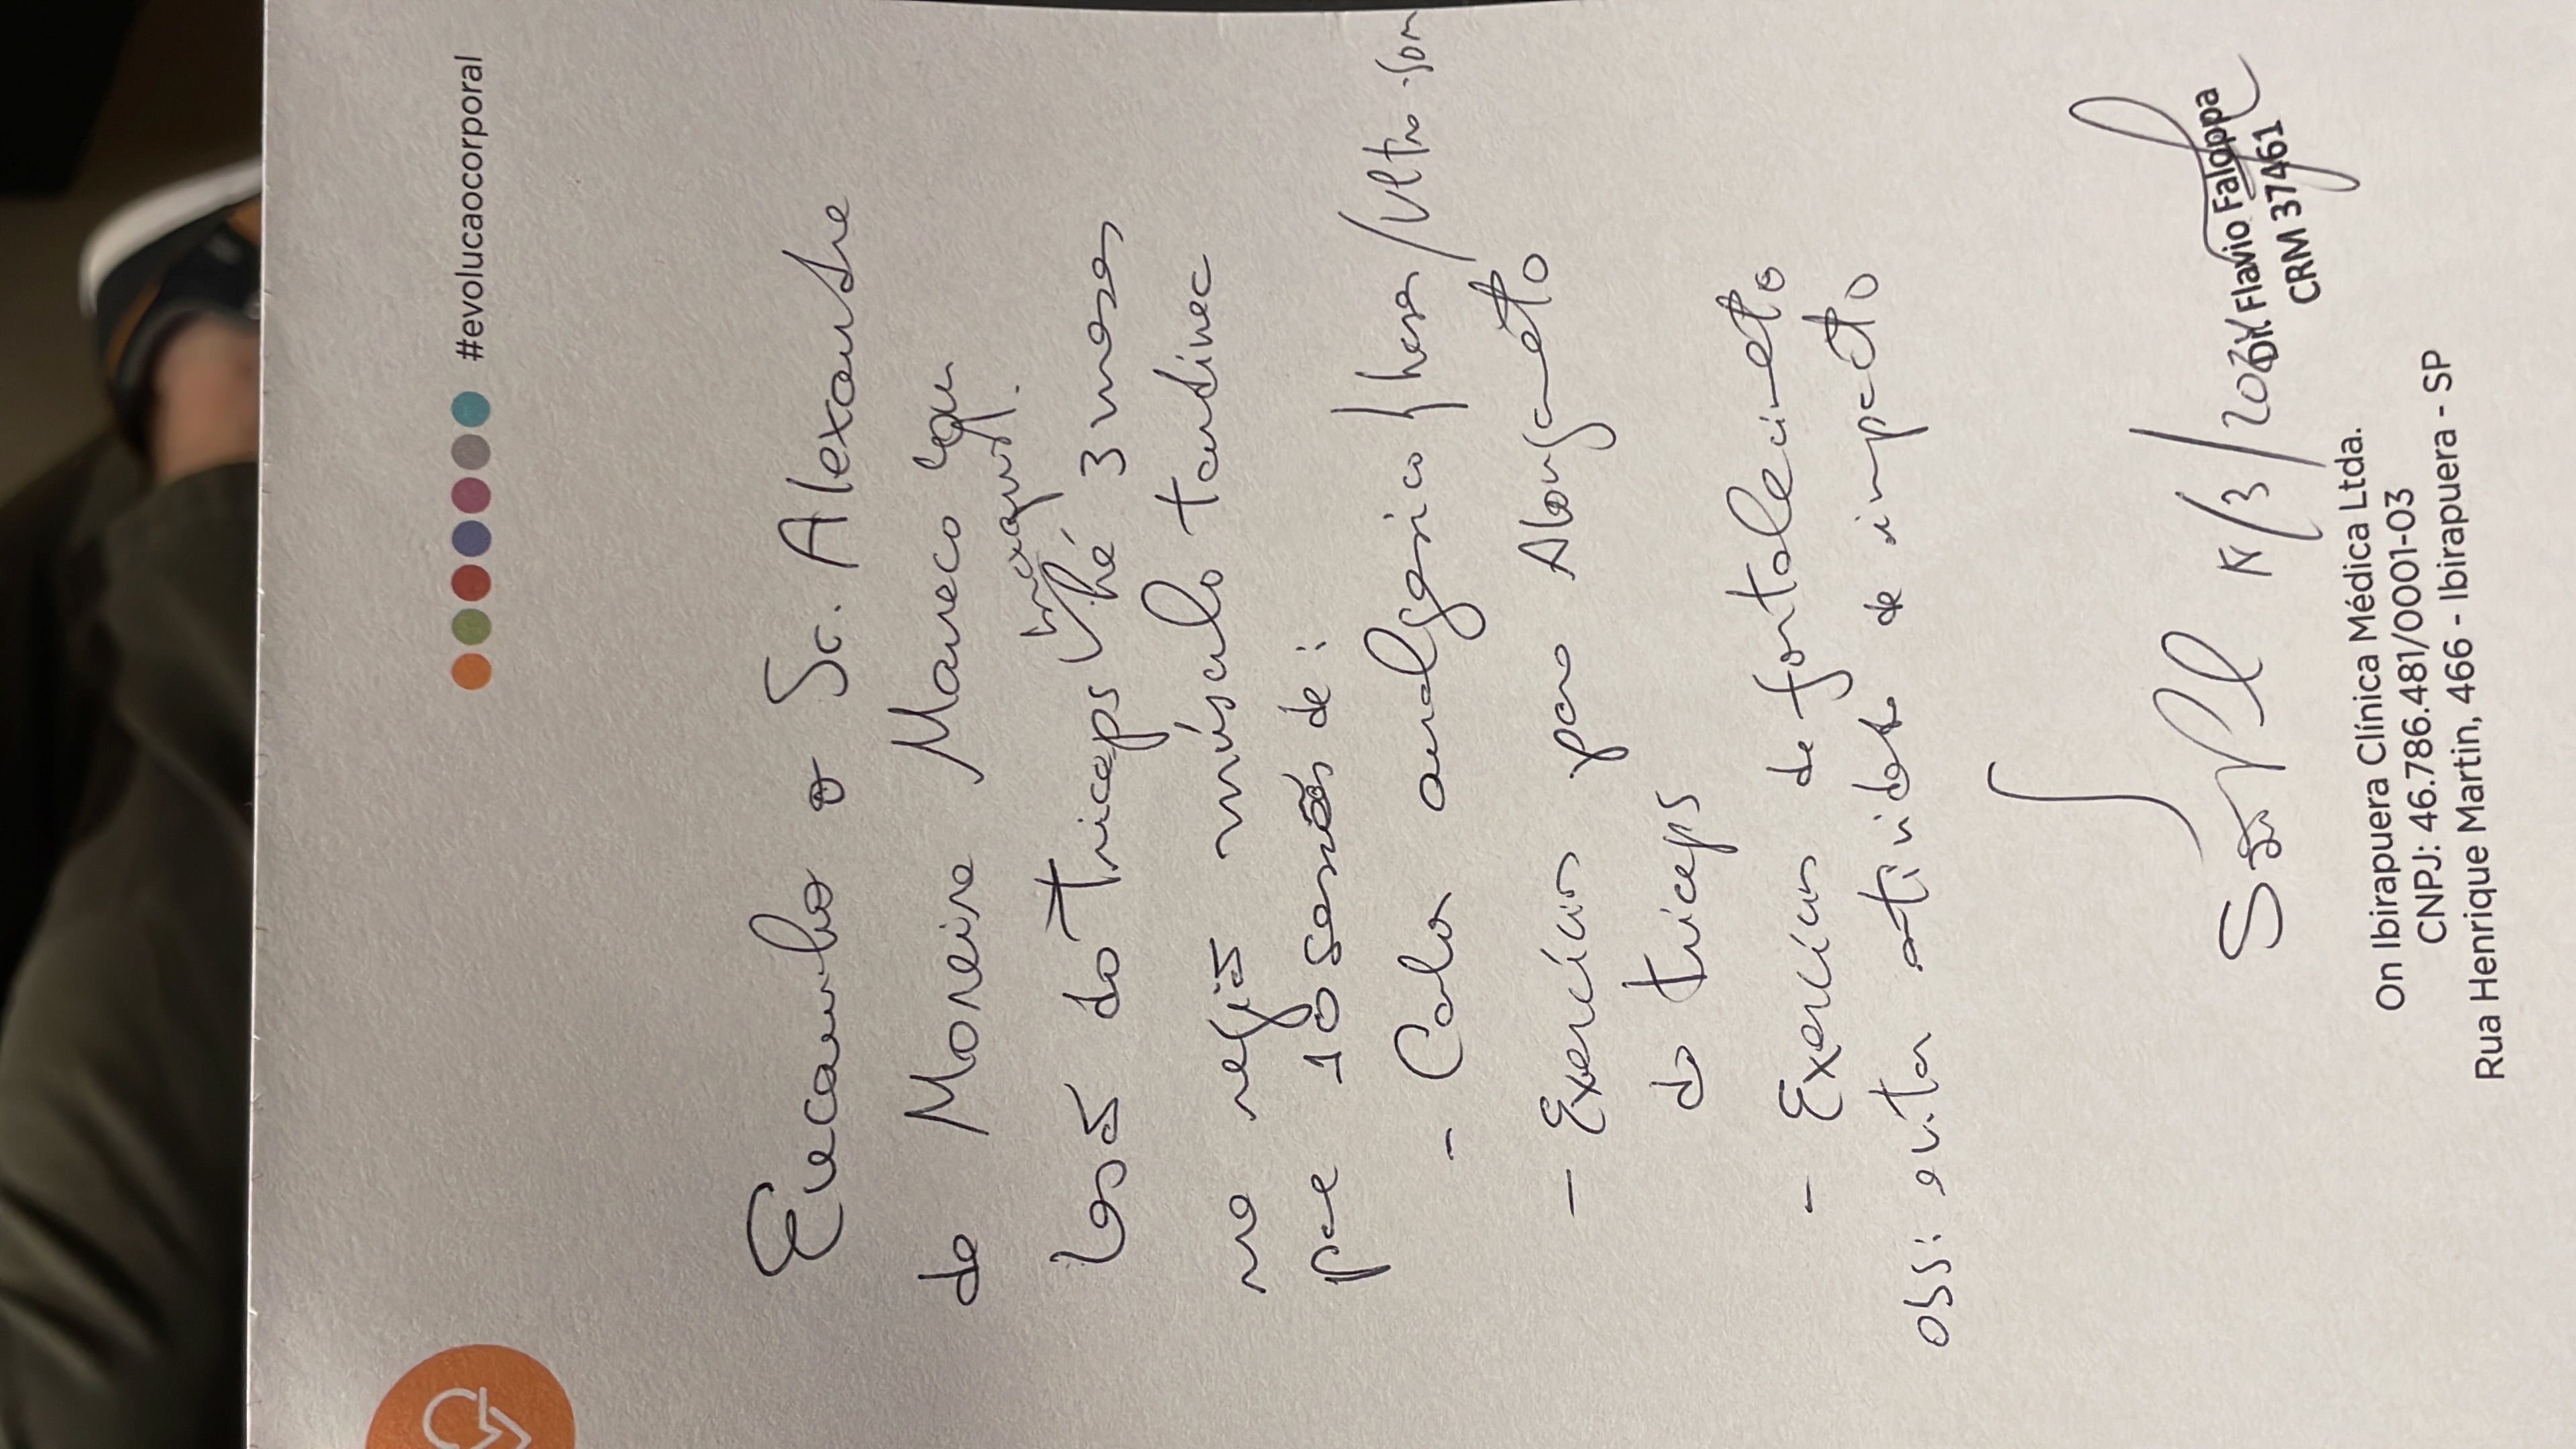 #evolucaocorporal
Encaminho o Sr. Alexandre
de Moreira Maneco com
lesão do Triceps há 3 meses
na região músculo tendinea
para 10 sessões de:
- Calor analgesico / laser / Ultra-som
- Exercícios para Alongamento
do triceps
- Exercícios de fortalecimento
obs: evitar atividade de impacto
São Pl /3/
Dr. Flavio Faloppa
CRM 37461
On Ibirapuera Clínica Médica Ltda.
CNPJ: 46.786.481/0001-03
Rua Henrique Martin, 466 - Ibirapuera - SP